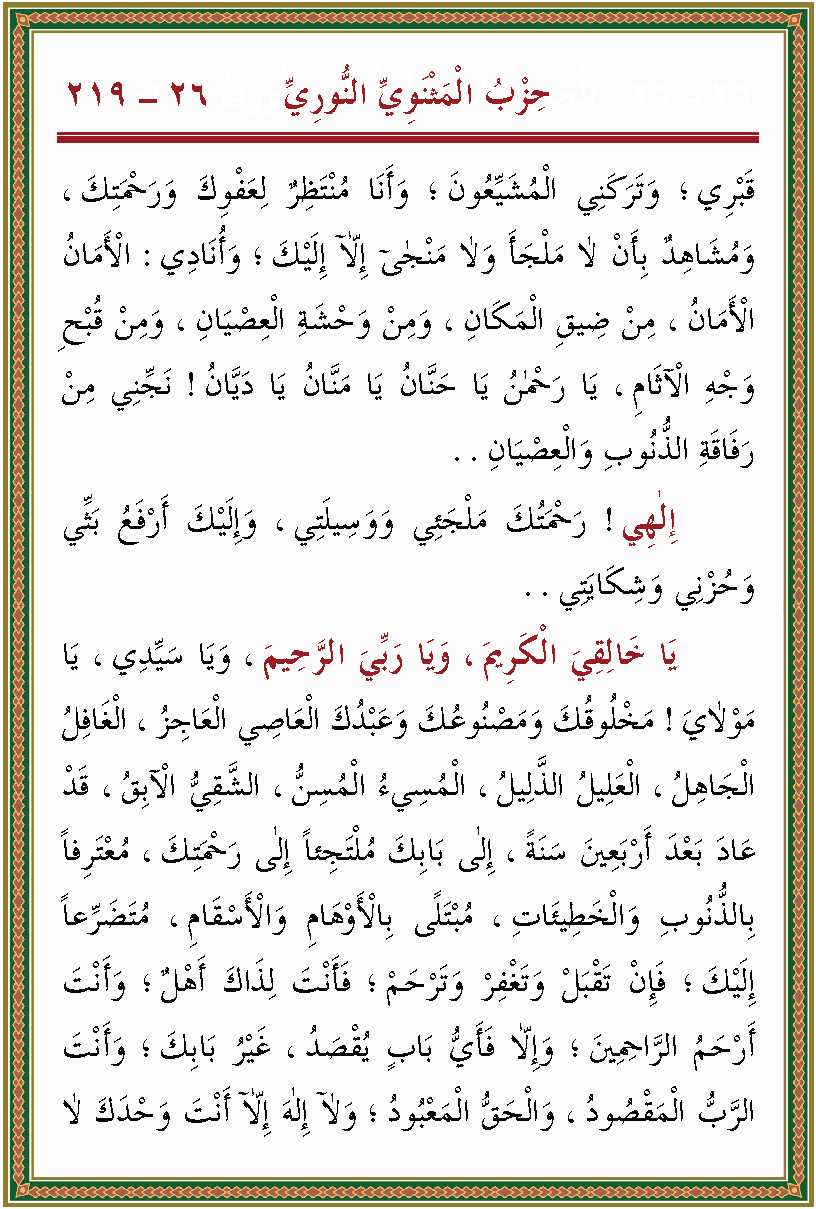 حِزْبُ الْمَثْنَوِيِّ النُّورِيِّ ٢٦ – ٢١٩
قَبْرِي ؛ وَتَرَكَنِي الْمُشَيِّعُونَ ؛ وَأَنَا مُنْتَظِرٌ لِعَفْوِكَ وَرَحْمَتِكَ ،
وَمُشَاهِدٌ بِأَنْ لَا مَلْجَأَ وَلَا مَنْجٰىٓ إِلَّآ إِلَيْكَ ؛ وَأُنَادِي : الْأَمَانُ
الْأَمَانُ ، مِنْ ضِيقِ الْمَكَانِ ، وَمِنْ وَحْشَةِ الْعِصْيَانِ ، وَمِنْ قُبْحِ
وَجْهِ الْآثَامِ ، يَا رَحْمٰنُ يَا حَنَّانُ يَا مَنَّانُ يَا دَيَّانُ ! نَجِّنِي مِنْ
رَفَاقَةِ الذُّنُوبِ وَالْعِصْيَانِ . .
إِلٰهِي ! رَحْمَتُكَ مَلْجَئِي وَوَسِيلَتِي ، وَإِلَيْكَ أَرْفَعُ بَثِّي
وَحُزْنِي وَشِكَايَتِي . .
يَا خَالِقِيَ الْكَرِيمَ ، وَيَا رَبِّيَ الرَّحِيمَ ، وَيَا سَيِّدِي ، يَا
مَوْلَايَ ! مَخْلُوقُكَ وَمَصْنُوعُكَ وَعَبْدُكَ الْعَاصِي الْعَاجِزُ ، الْغَافِلُ
الْجَاهِلُ ، الْعَلِيلُ الذَّلِيلُ ، الْمُسِيءُ الْمُسِنُّ ، الشَّقِيُّ الْآبِقُ ، قَدْ
عَادَ بَعْدَ أَرْبَعِينَ سَنَةً ، إِلٰى بَابِكَ مُلْتَجِئاً إِلٰى رَحْمَتِكَ ، مُعْتَرِفاً
بِالذُّنُوبِ وَالْخَطِيئَاتِ ، مُبْتَلًى بِالْأَوْهَامِ وَالْأَسْقَامِ ، مُتَضَرِّعاً
إِلَيْكَ ؛ فَإِنْ تَقْبَلْ وَتَغْفِرْ وَتَرْحَمْ ؛ فَأَنْتَ لِذَاكَ أَهْلٌ ؛ وَأَنْتَ
أَرْحَمُ الرَّاحِمِينَ ؛ وَإِلَّا فَأَيُّ بَابٍ يُقْصَدُ ، غَيْرُ بَابِكَ ؛ وَأَنْتَ
الرَّبُّ الْمَقْصُودُ ، وَالْحَقُّ الْمَعْبُودُ ؛ وَلَآ إِلٰهَ إِلَّآ أَنْتَ وَحْدَكَ لَا